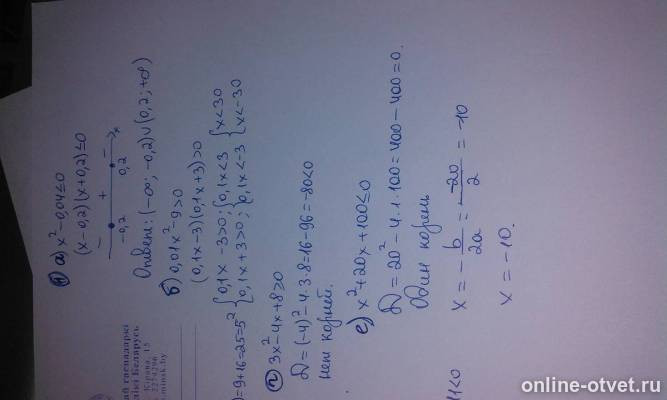 1) а) x² - 0,04 ≤ 0
(x - 0,2)(x + 0,2) ≤ 0
- + -
-0,2 0,2 x
Ответ: (-∞; -0,2) ∪ (0,2; +∞)
б) 0,01x² - 9 > 0
(0,1x - 3)(0,1x + 3) > 0
{ 0,1x - 3 > 0; { 0,1x < 3 { x < 30
{ 0,1x + 3 > 0; { 0,1x < -3 { x < -30
) = 9 + 16 = 25 = 5²
г) 3x² - 4x + 8 ≥ 0
D = (-4)² - 4·3·8 = 16 - 96 = -80 < 0
нет корней.
е) x² + 20x + 100 ≤ 0
D = 20² - 4·1·100 = 400 - 400 = 0.
Один корень
x = -b/2a = -20/2 = -10
x = -10.
1 < 0
Кірава, 15
2274296
minsk.by
online-otvet.ru